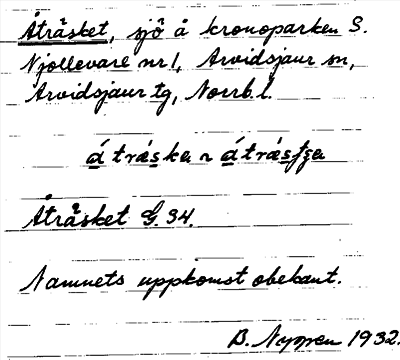 Åträsket, sjö å kronoparken S.
Njollevare nr 1, Arvidsjaur sn,
Arvidsjaur tg, Norrb. l.
átráska ~
Åträsket G. 34.
Namnets uppkomst obekant.
B. Nygren 1932.